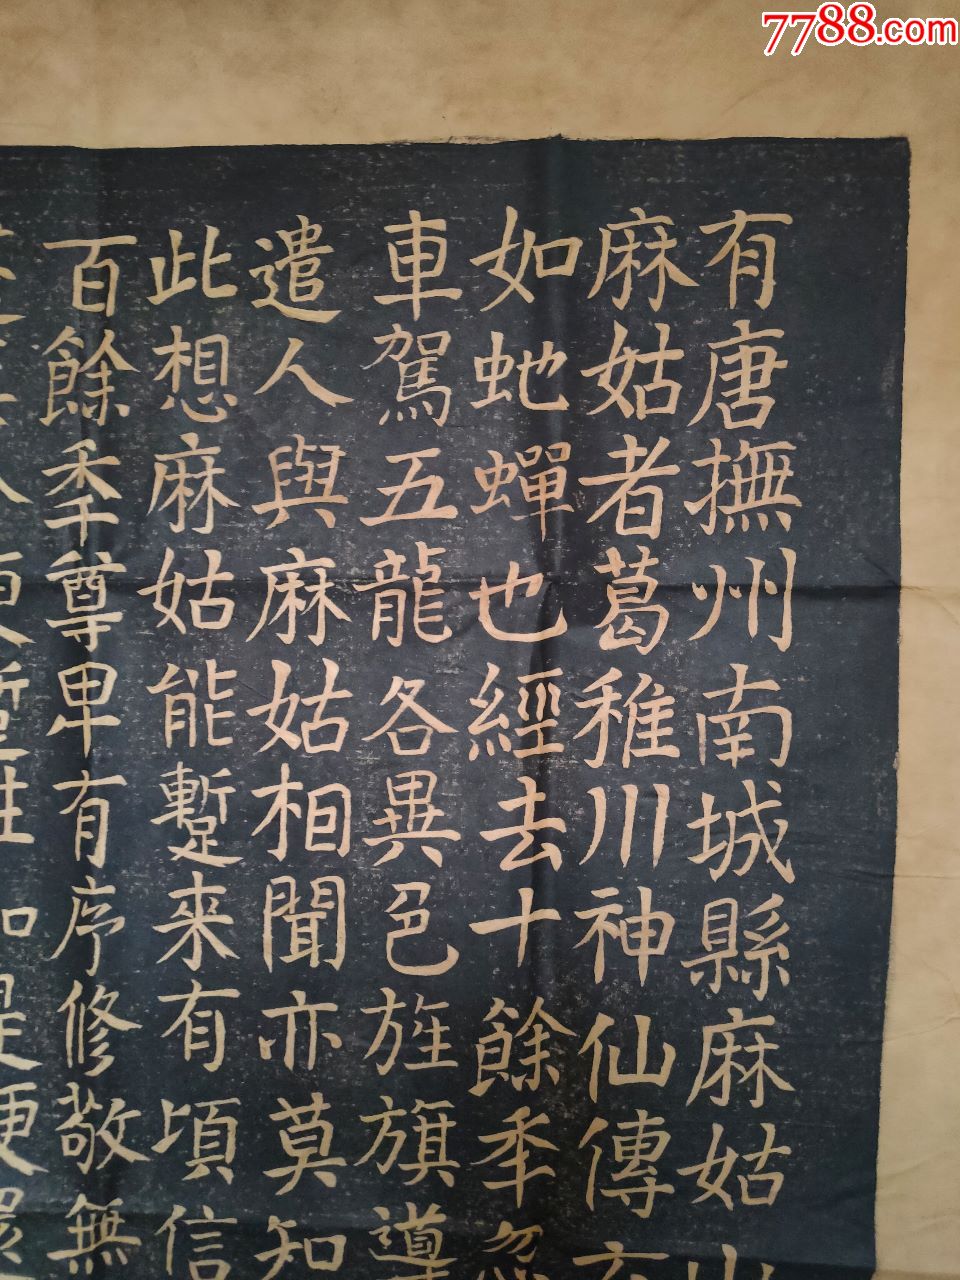 7788.com
有唐撫州南城縣麻姑山
麻姑者葛稚川神仙傳
如虵蟬也經去十餘秊忽
車駕五龍各異色旌旗導
遣人與麻姑相聞亦莫知
此想麻姑能蹔來有頃信
百餘秊尊卑有序修敬無